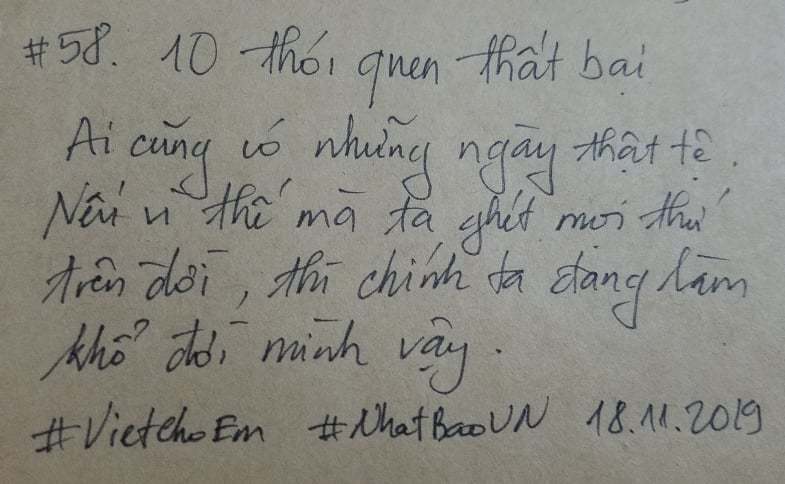 #58. 10 thói quen thất bại
Ai cũng có những ngày thật tệ.
Nếu vì thế mà ta ghét mọi thứ
trên đời, thì chính ta đang làm
khổ đời mình vậy.
#VietchoEm #NhatBaoVN 18.11.2019